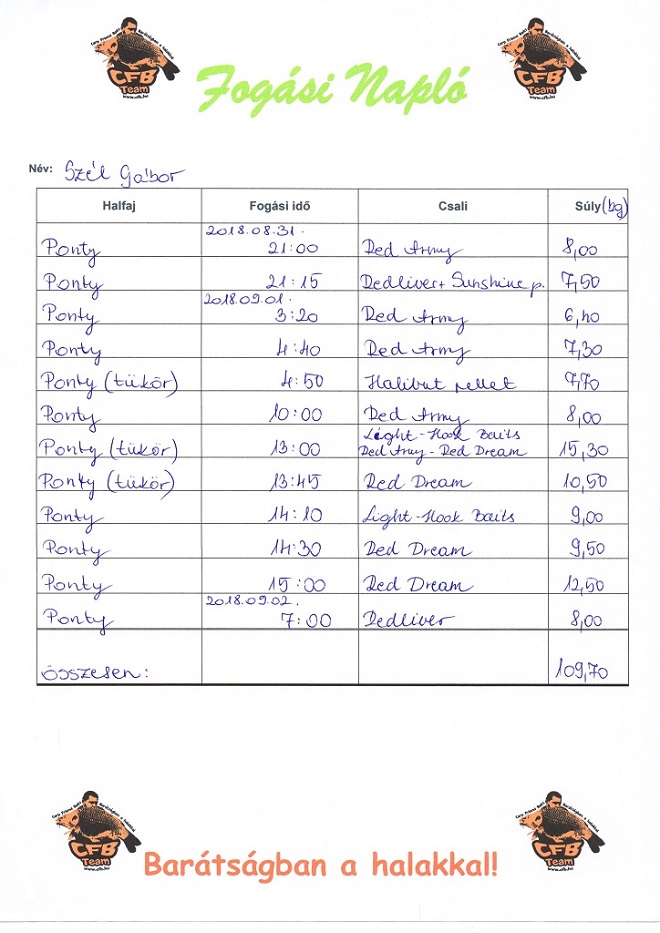 Carp Friend Baits Barátságban a halakkal
CFB
Team
www.cfb.hu
Carp Friend Baits Barátságban a halakkal
CFB
Team
www.cfb.hu
Fogási Napló
Név: Szél Gábor
Halfaj Fogási idő Csali Súly (kg)
2018.08.31.
Ponty 21:00 Red Army 8,00
Ponty 21:15 Redliver + Sunshine p. 7,50
2018.09.01.
Ponty 3:20 Red Army 6,40
Ponty 4:40 Red Army 7,30
Ponty (tükör) 4:50 Halibut pellet 7,70
Ponty 10:00 Red Army 8,00
Light-Hook Baits
Ponty (tükör) 13:00 Red Army - Red Dream 15,30
Ponty (tükör) 13:45 Red Dream 10,50
Ponty 14:10 Light-Hook Baits 9,00
Ponty 14:30 Red Dream 9,50
Ponty 15:00 Red Dream 12,50
2018.09.02.
Ponty 7:00 Redliver 8,00
összesen: 109,70
Carp Friend Baits Barátságban a halakkal
CFB
Team
www.cfb.hu
Barátságban a halakkal!
Carp Friend Baits Barátságban a halakkal
CFB
Team
www.cfb.hu